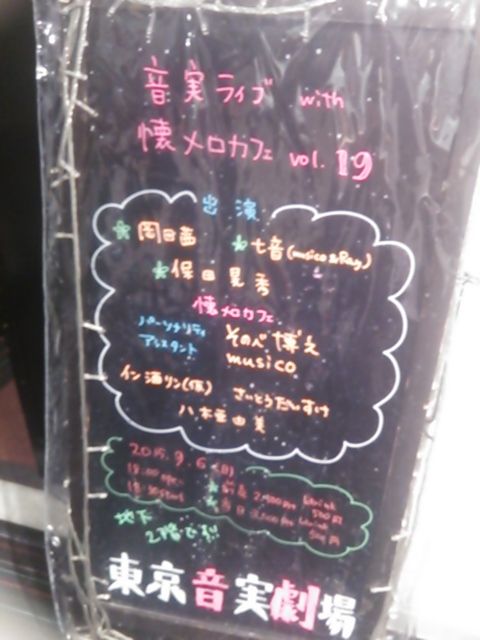 音実ライブ with
懐メロカフェ vol. 19
出演
★岡田茜 ★七音(musico & Ray)
★保田晃秀
懐メロカフェ
パーソナリティ そのべ博之
アシスタント musico
イン酒リン(仮) さいとうだいすけ
八木亜由美
2015. 9. 6 (日)
18:00 open ★前売 2,500円 +drink 500円
18:30 start ★当日 3,000円 +drink 500円
地下
2階です!!
東京音実劇場